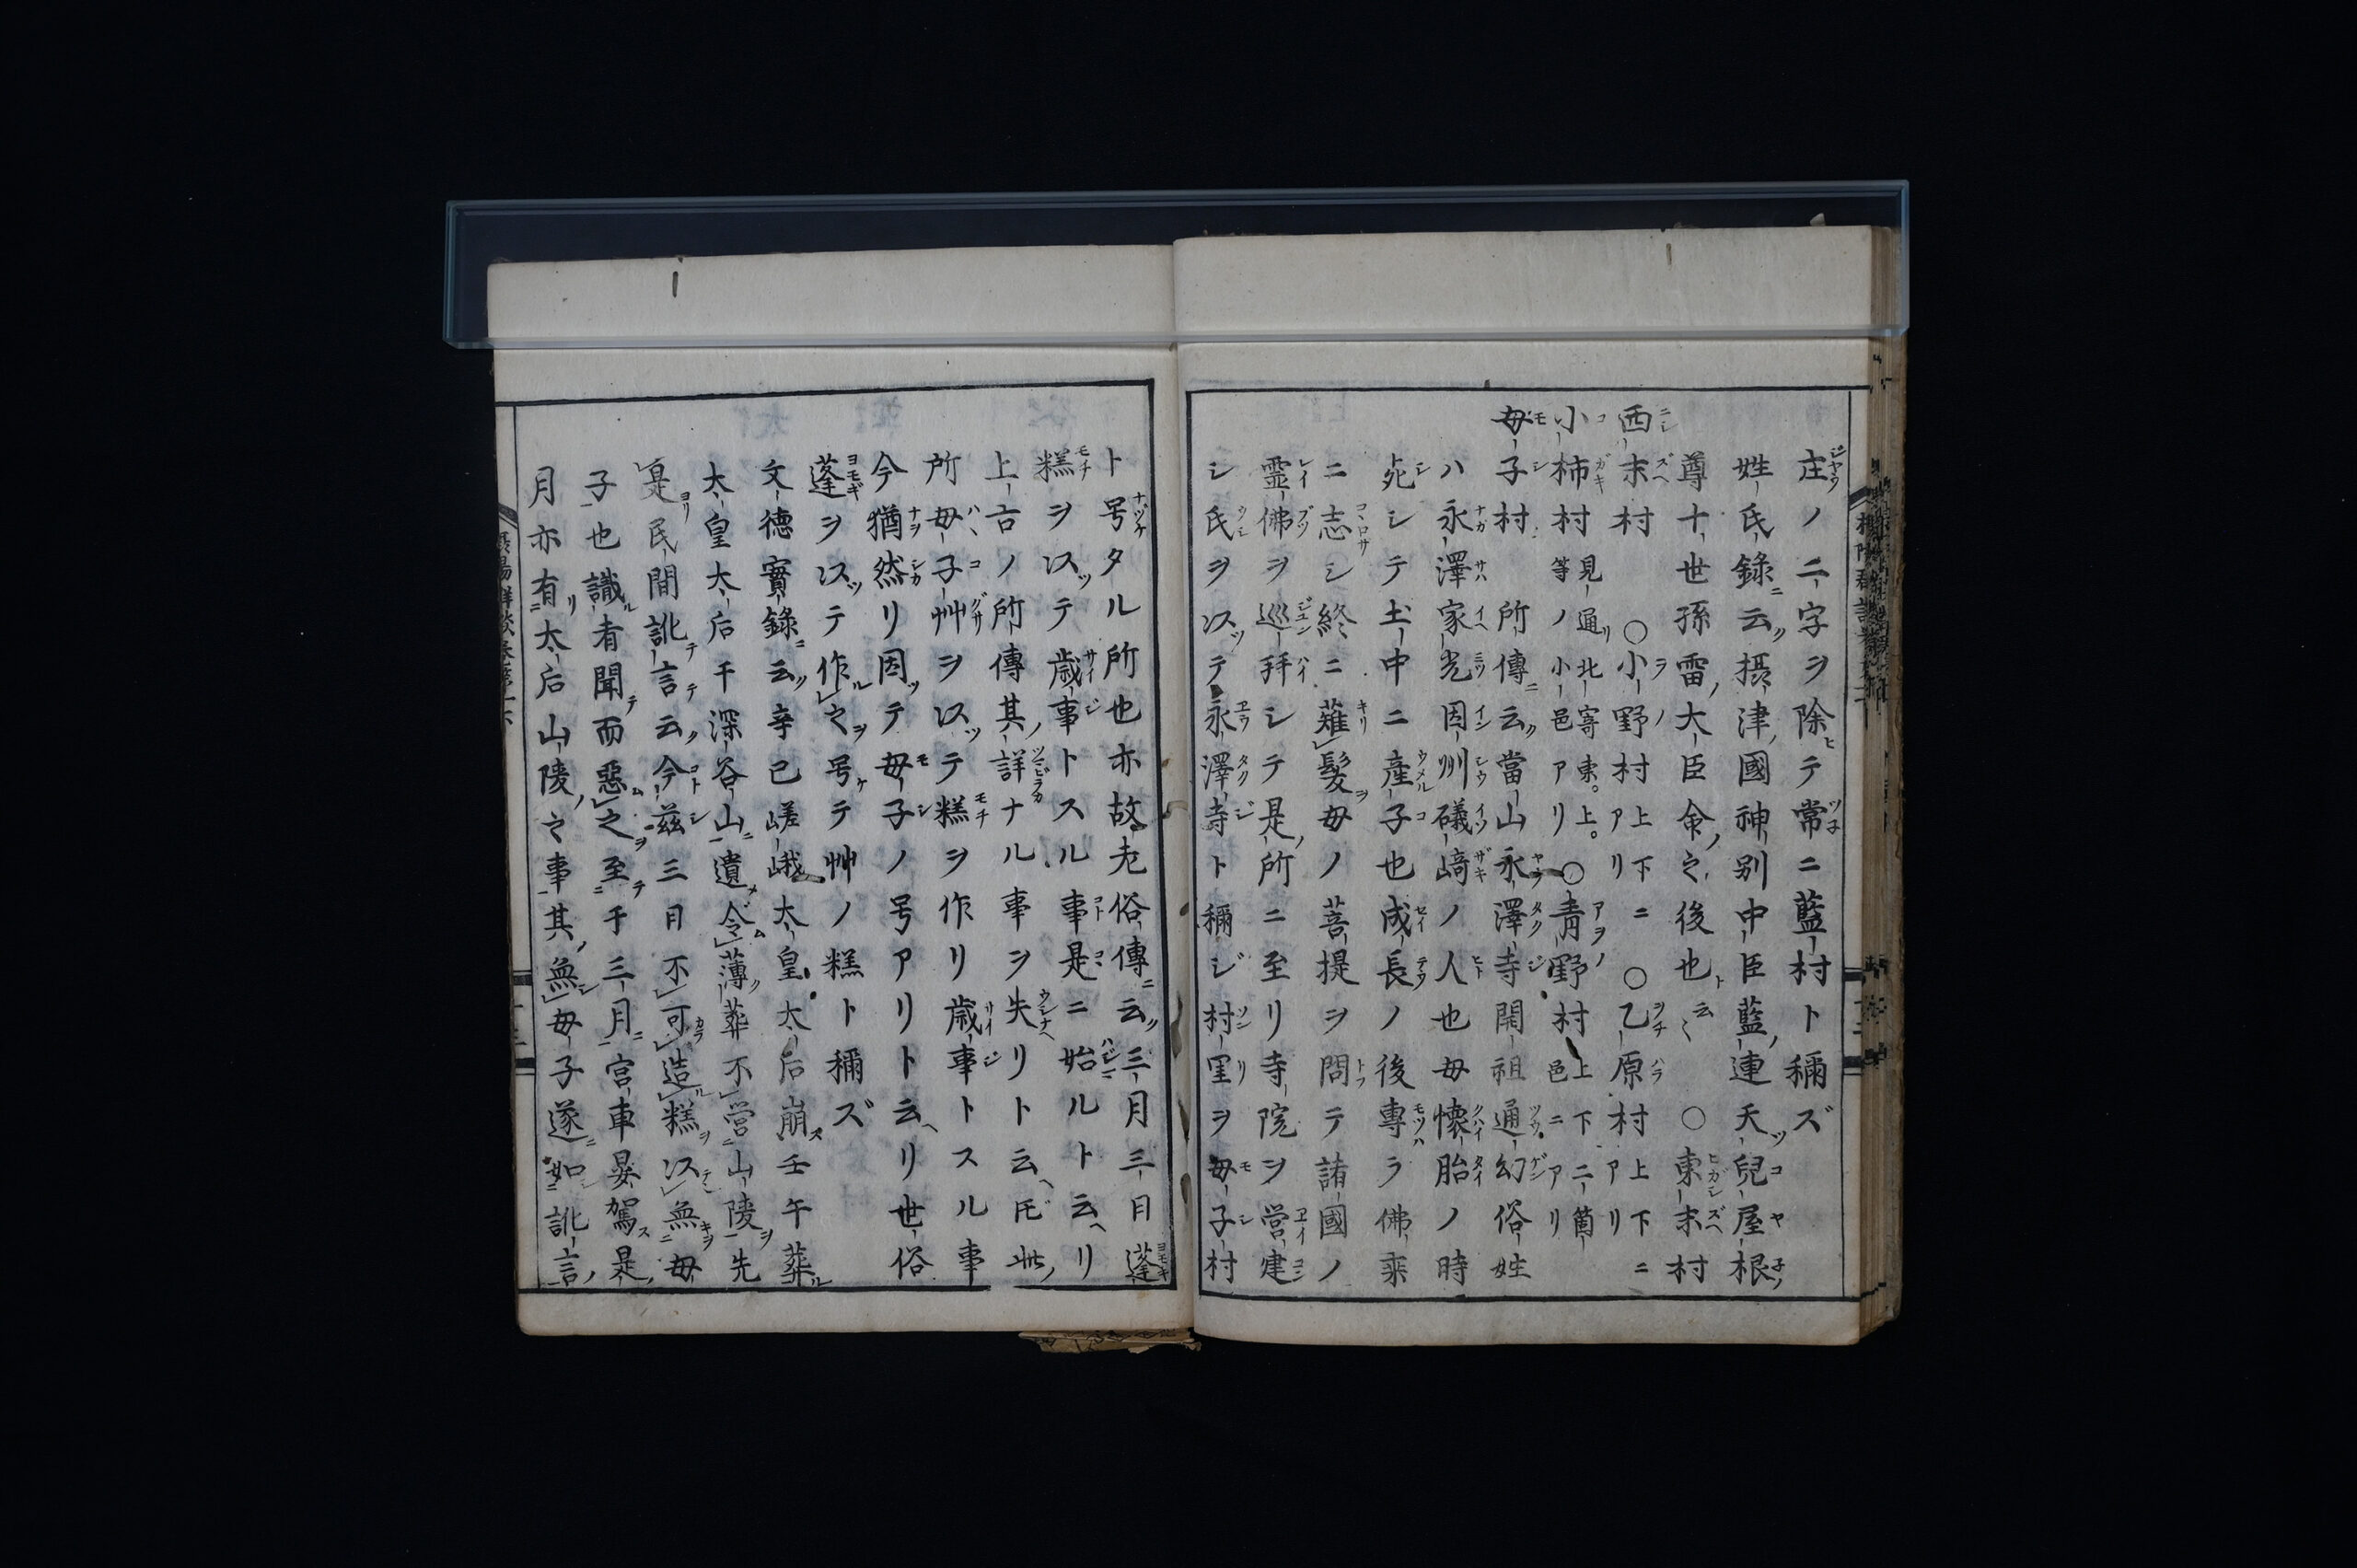 庄ノ二字ヲ除テ常ニ藍村ト稱ズ
姓氏錄云摂津國神別中臣藍連天兒屋根
尊十一世孫雷大臣命之後也云〻 ○東末村
西末村 ○小野村上下ニアリ ○乙原村上下ニアリ
小柿村見通北寄東上等ノ小邑アリ ○青野村上下二箇邑ニアリ
母子村 所傳云當山永澤寺開祖通幻俗姓
ハ永澤家光因州礒﨑ノ人也母懐胎ノ時
死シテ土中ニ産子也成長ノ後專ラ佛乘
ニ志シ終ニ薙髪母ノ菩提ヲ問テ諸國ノ
霊佛ヲ巡拜シテ是所ニ至リ寺院ヲ営建
シ氏ヲ以テ永澤寺ト稱ジ村里ヲ母子村
ト号タル所也亦故老俗傳云三月三日蓬
糕ヲ以テ歳事トスル事是ニ始ルト云リ
上古ノ所傳其詳ナル事ヲ失リト云𪜈此
所母子艸ヲ以テ糕ヲ作リ歳事トスル事
今猶然リ因テ母子ノ号アリト云リ世俗
蓬ヲ以テ作之号テ艸ノ糕ト稱ズ
文德實錄云辛巳嵯峨太皇太后崩壬午葬
太皇太后于深谷山遺令薄葬不営山陵先
是民間訛言云今茲三日不可造糕以無母
子也識者聞而惡之至于三月宮車晏駕是
月亦有太后山陵之事其無母子遂如訛言